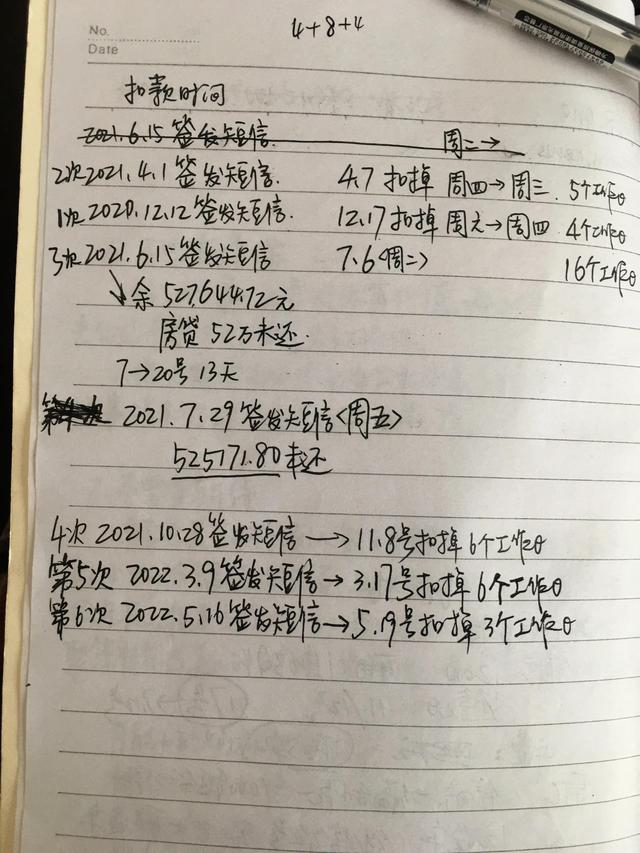 No.
Date
4+8+4
扣款时间
2021.6.15 签发短信 周二→
2次 2021.4.1 签发短信. 4.7 扣掉 周四→周三. 5个工作日
1次 2020.12.12 签发短信. 12.17 扣掉 周六→周四 4个工作日
3次 2021.6.15 签发短信 7.6<周二> 16个工作日
↘余 527,644.72元
房贷 52万未还.
7→20号 13天
2021.7.29 签发短信<周五>
525171.80未还
4次 2021.10.28 签发短信 → 11.8号扣掉 6个工作日
第5次 2022.3.9 签发短信→ 3.17号扣掉 6个工作日
第6次 2022.5.16 签发短信→ 5.19号扣掉 3个工作日